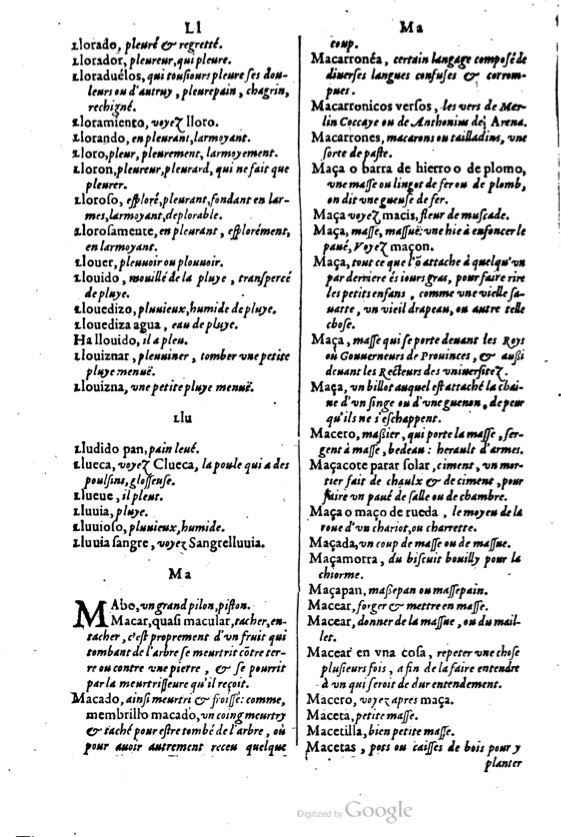 Ll
Llorado, pleuré & regretté.
Llorador, pleureur, qui pleure.
Lloraduélos, qui tousiours pleure ses dou-
leurs ou d'autruy, pleurepain, chagrin,
rechigné.
Lloramiento, voyez lloro.
Llorando, en pleurant, larmoyant.
Lloro, pleur, pleurement, larmoyement.
Lloron, pleureur, pleurard, qui ne fait que
pleurer.
Lloroso, esploré, pleurant, fondant en lar-
mes, larmoyant, deplorable.
Llorosamente, en pleurant, esplorément,
en larmoyant.
Llouer, pleuuoir ou plouuoir.
Llouido, mouillé de la pluye, transpercé
de pluye.
Llouedizo, pluuieux, humide de pluye.
Llouediza agua, eau de pluye.
Ha llouido, il a pleu.
Llouiznar, pleuuiner, tomber vne petite
pluye menuë.
Llouizna, vne petite pluye menuë.
Llu
Lludido pan, pain leué.
Llueca, voyez Clueca, la poule qui a des
poulsins, glosseuse.
Llueue, il pleut.
Lluuia, pluye.
Lluuioso, pluuieux, humide.
Lluuia sangre, voyez Sangrelluuia.
Ma
MAbo, vn grand pilon, piston.
Macar, quasi macular, tacher, en-
tacher, c'est proprement d'vn fruit qui
tombant de l'arbre se meurtrit cõtre ter-
re ou contre vne pierre, & se pourrit
par la meurtrisseure qu'il reçoit.
Macado, ainsi meurtri & froissé: comme,
membrillo macado, vn coing meurtry
& taché pour estre tombé de l'arbre, où
pour auoir autrement receu quelque
Ma
coup.
Macarronéa, certain langage composé de
diuerses langues confuses & corrom-
pues.
Macarronicos versos, les vers de Mer-
lin Coccaye ou de Anthonius de Arena.
Macarrones, macarons ou tailladins, vne
sorte de paste.
Maça o barra de hierro o de plomo,
vne masse ou lingot de fer ou de plomb,
on dit vne gueuse de fer.
Maça voyez macis, fleur de muscade.
Maça, masse, massuë: vne hie à enfoncer le
paué, Voyez maçon.
Maça, tout ce que l'õ attache à quelqu'vn
par derriere és iours gras, pour faire rire
les petits enfans, comme vne vielle sa-
uatte, vn vieil drapeau, ou autre telle
chose.
Maça, masse qui se porte deuant les Roys
ou Gouuerneurs de Prouinces, & aussi
deuant les Recteurs des vniuersitez.
Maça, vn billot auquel est attaché la chai-
ne d'vn singe ou d'vne guenon, de peur
qu'ils ne s'eschappent.
Macero, massier, qui porte la masse, ser-
gent à masse, bedeau: herault d'armes.
Maçacote parar solar, ciment, vn mor-
tier fait de chaulx & de ciment, pour
faire vn paué de salle ou de chambre.
Maça o maço de rueda, le moyeu de la
roue d'vn chariot, ou charrette.
Maçada, vn coup de masse ou de massue.
Maçamorra, du biscuit bouilly pour la
chiorme.
Maçapan, massepan ou massepain.
Macear, forger & mettre en masse.
Macear, donner de la massue, ou du mail-
let.
Macear en vna cosa, repeter vne chose
plusieurs fois, a fin de la faire entendre
à vn qui seroit de dur entendement.
Macero, voyez apres maça.
Maceta, petite masse.
Macetilla, bien petite masse.
Macetas, pots ou caisses de bois pour y
planter
Digitized by Google